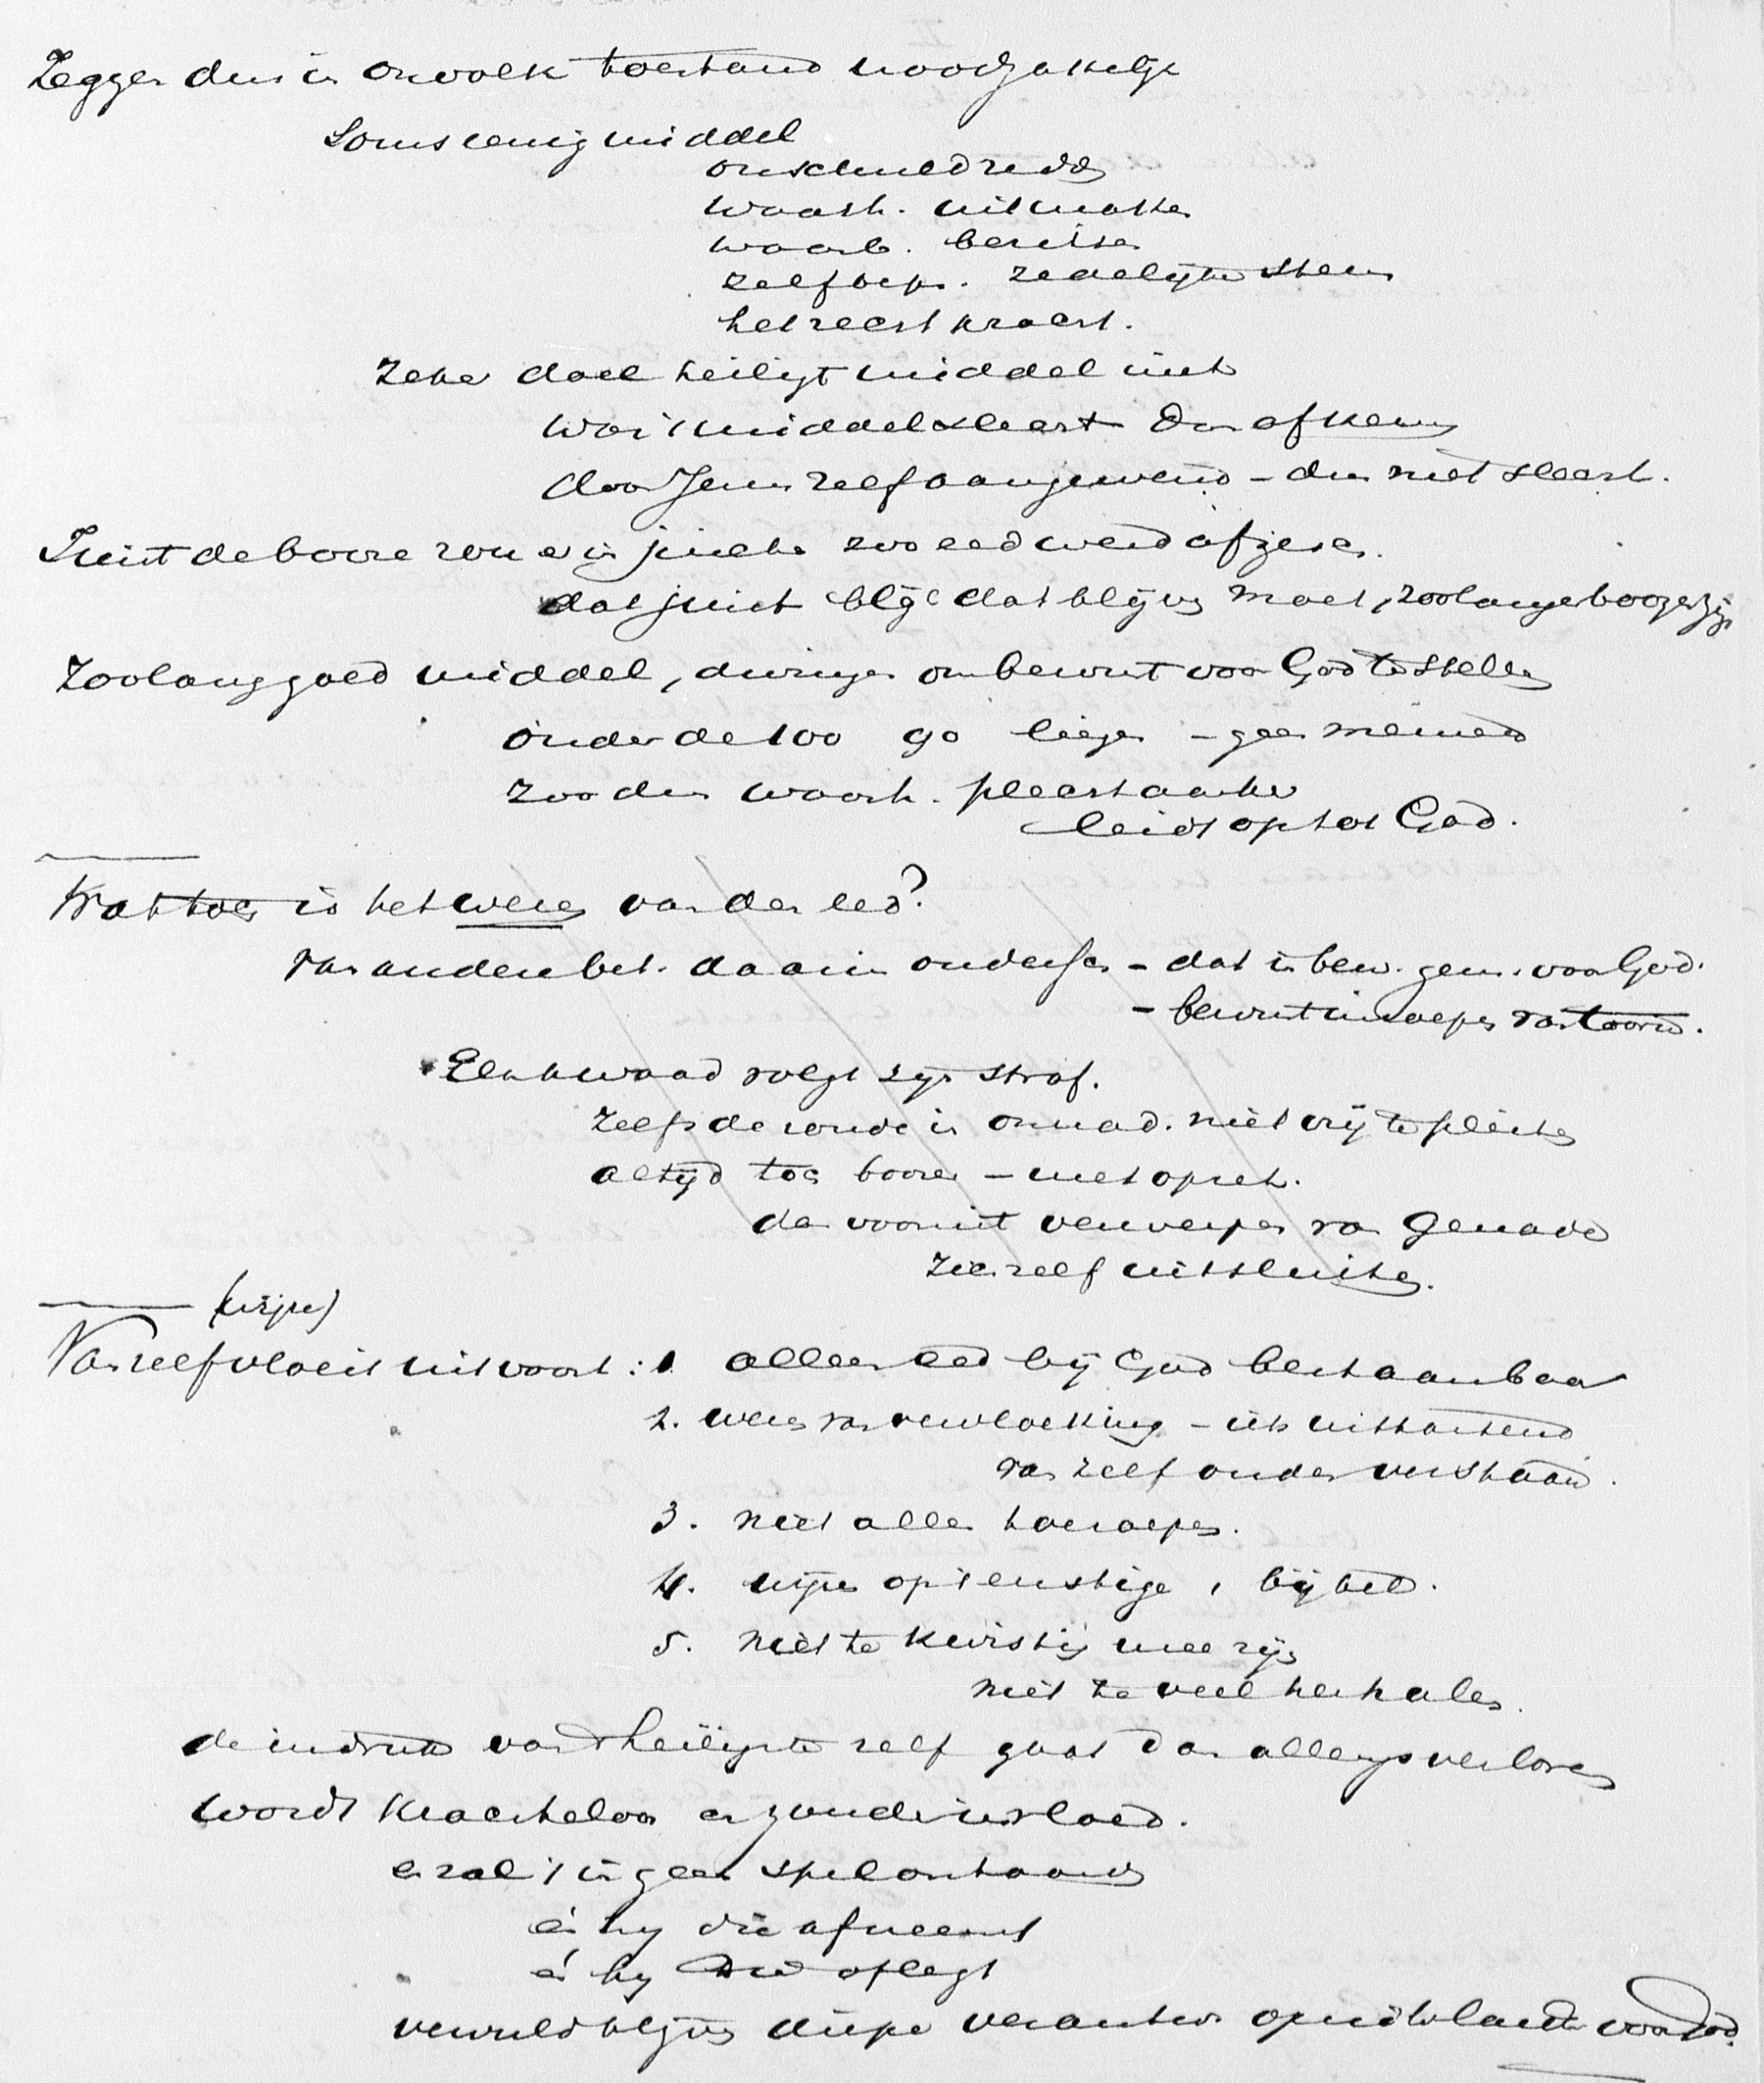 Zeggen dus in onvolk toestand noodzakelijk
Soms eenig middel
onschuld redd
waarh. uitmaken
waarb. bereiken
zelfbep. zedelijke steun
het recht kracht.
Zeker doel heiligt middel niet
was 't middel slecht dan afkeur
door Jezus zelf aangewend – dus niet slecht.
Juist de booze zou er in juichen zoo eed werd afgezw.
dat juist blijk dat blijven moet, zoolang er boozen zijn
Zoolang goed middel, dwingen om bewust voor God te stellen
onder de 100 90 liegen – geen meineed
zoo dus waarh. plaats
leidt op tot God.
Wat toch is het wezen van den eed?
Van anderen bet. daarin onderscheiden – dat in bew. gem. voor God.
– bewust inroepen van toorn.
Elk kwaad volgt zijn straf.
Zelfs de zonde in onnad. niet vrij te pleiten
altijd toch booze – met opzet.
dan vooruit verwerpen van genade
Zich zelf uitsluiten.
(wijze)
Van zelf vloeit uit voort: 1 alleen eed bij God bestaanbaar
2. wezen van vervloeking – iets uittartend
van zelf onder verstaan.
3. niet alles toeroepen.
4. wijze op 't ernstige, bijbel.
5. niet te kwistig mee zijn
niet te veel herhalen.
de indruk van 't heiligste zelf gaat dan allengs verloren
wordt krachteloos en zonder invloed.
en zal 't in geen spel ontaarden
én hij die afneemt
én hij die aflegt
vervuld blijven diepe verantw. op uitslaande voor God.